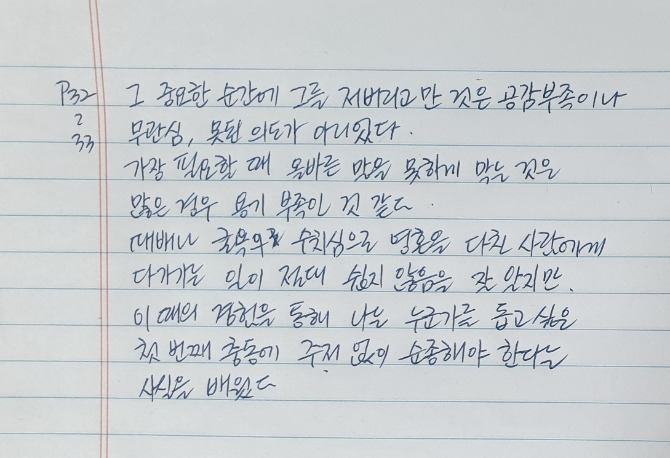 P32 그 중요한 순간에 그를 저버리고만 것은 공감부족이나
2 무관심, 못된 의도가 아니었다.
33 가장 필요할 때 올바른 말을 못하게 막는 것은
많은 경우 용기 부족인 것 같다.
패배나 굴욕의 수치심으로 영혼을 다친 사람에게
다가가는 일이 절대 쉽지 않음을 잘 알지만.
이 때의 경험을 통해 나는 누군가를 돕고 싶은
첫 번째 충동에 주저 없이 순종해야 한다는
사실을 배웠다